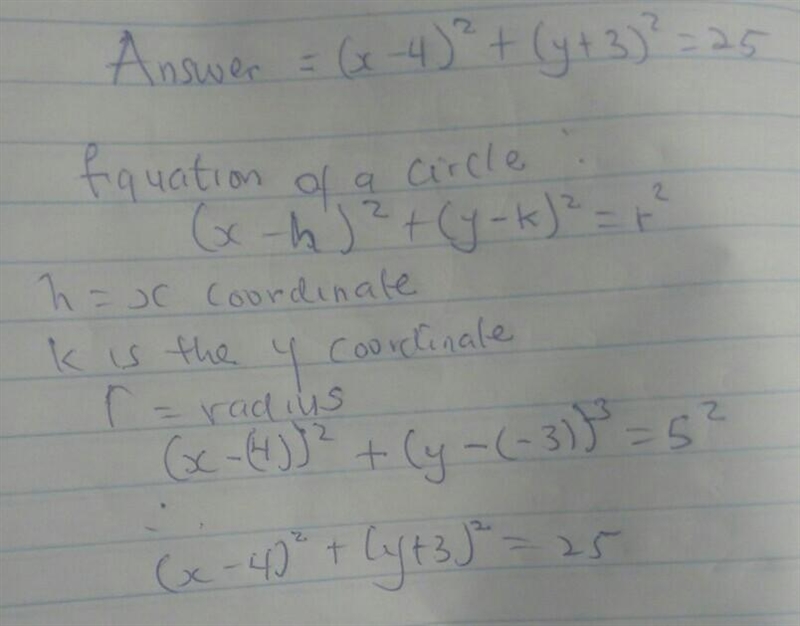 Answer = (x-4)² + (y+3)² = 25
Equation of a circle :
(x-h)² + (y-k)² = r²
h = x coordinate
k is the y coordinate
r = radius
(x-(4))² + (y-(-3))³ = 5²
∴
(x-4)² + (y+3)² = 25